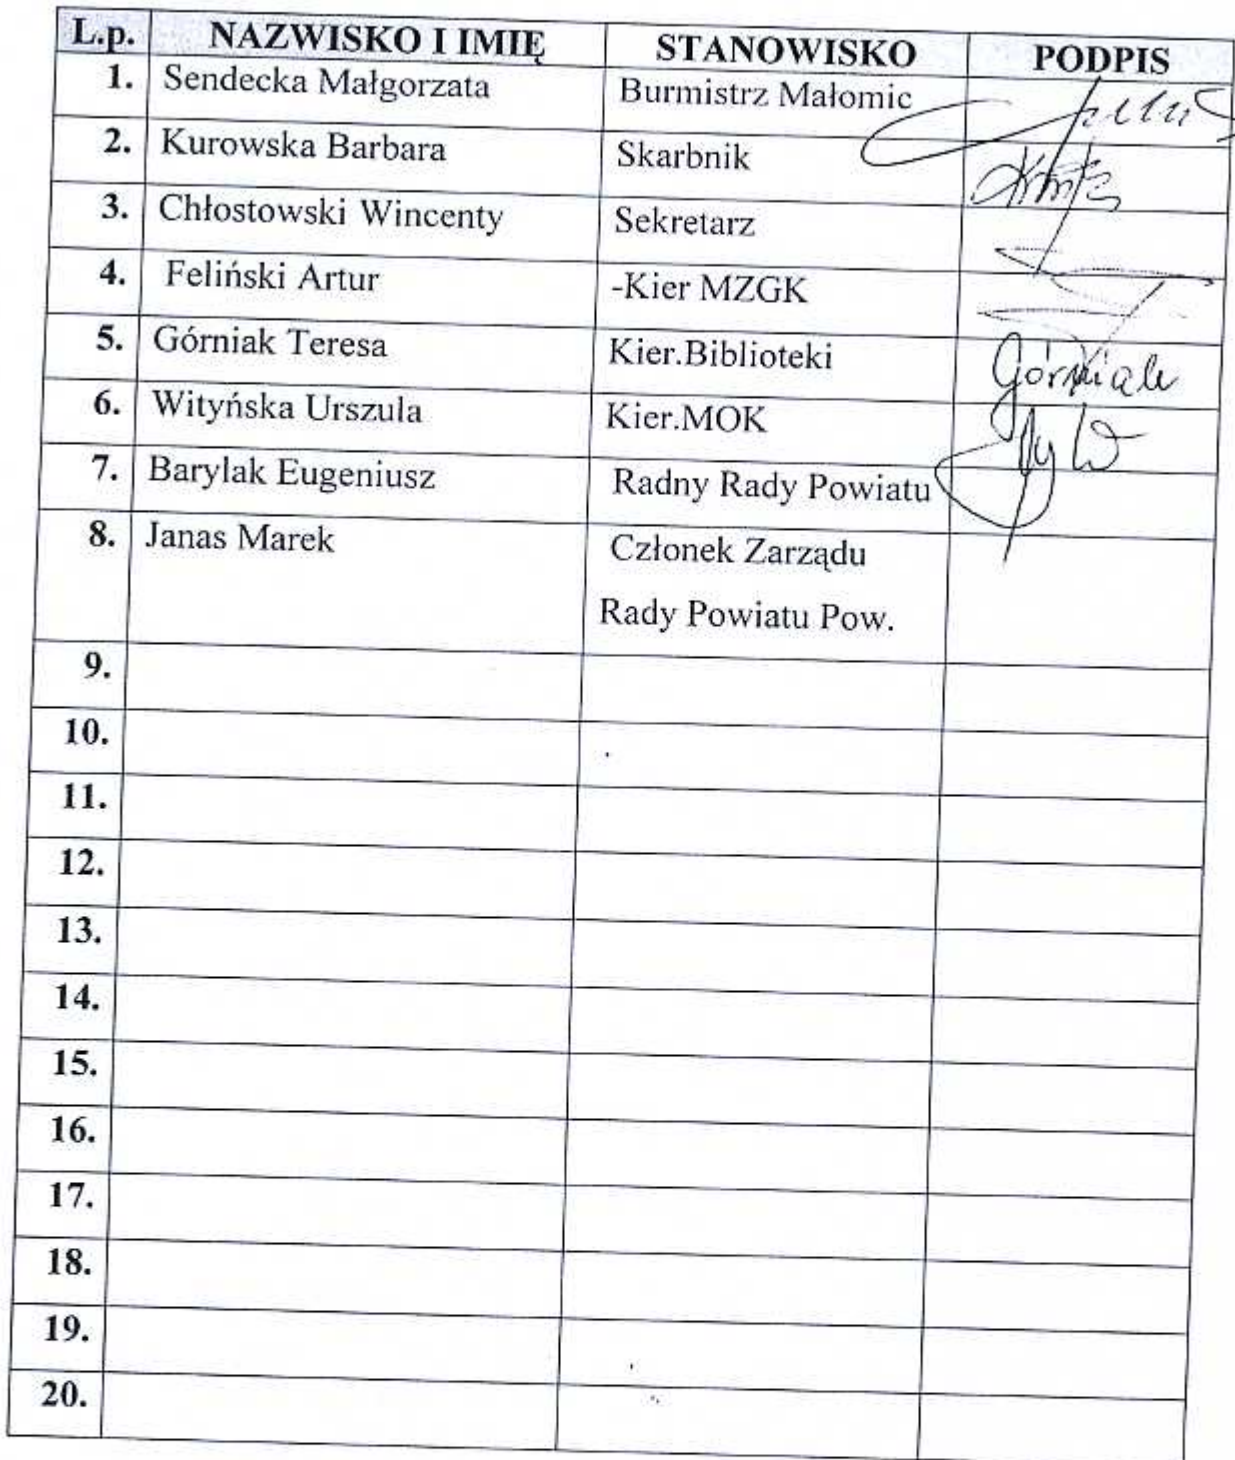 L.p. NAZWISKO I IMIĘ STANOWISKO PODPIS
1. Sendecka Małgorzata Burmistrz Małomic
2. Kurowska Barbara Skarbnik
3. Chłostowski Wincenty Sekretarz
4. Feliński Artur -Kier MZGK
5. Górniak Teresa Kier.Biblioteki Górniak
6. Wityńska Urszula Kier.MOK
7. Barylak Eugeniusz Radny Rady Powiatu
8. Janas Marek Członek Zarządu
Rady Powiatu Pow.
9.
10.
11.
12.
13.
14.
15.
16.
17.
18.
19.
20.